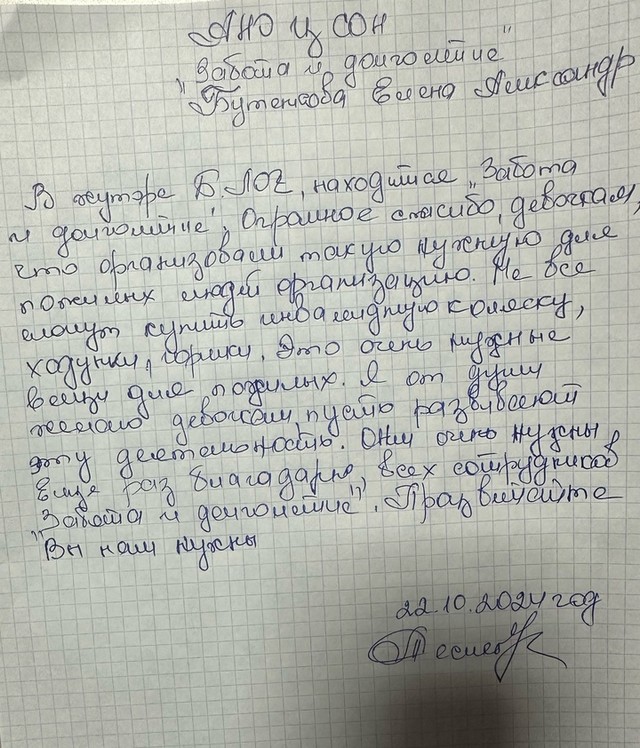 АНО ЦСОН
"Забота и долголетие"
Бутенкова Елена Александр
В хуторе Б. ЛОГ, находится „Забота
и долголетие", Огромное спасибо, девочкам,
что организовали такую нужную для
пожилых людей организацию. Не все
могут купить инвалидную коляску,
ходунки, горшки. Это очень нужные
вещи для пожилых. Я от души
желаю девочкам, пусть развивают
эту деятельность. Они очень нужны
Еще раз благодарю всех сотрудников
"Забота и долголетие".
Вы нам нужны
22.10.2024 год